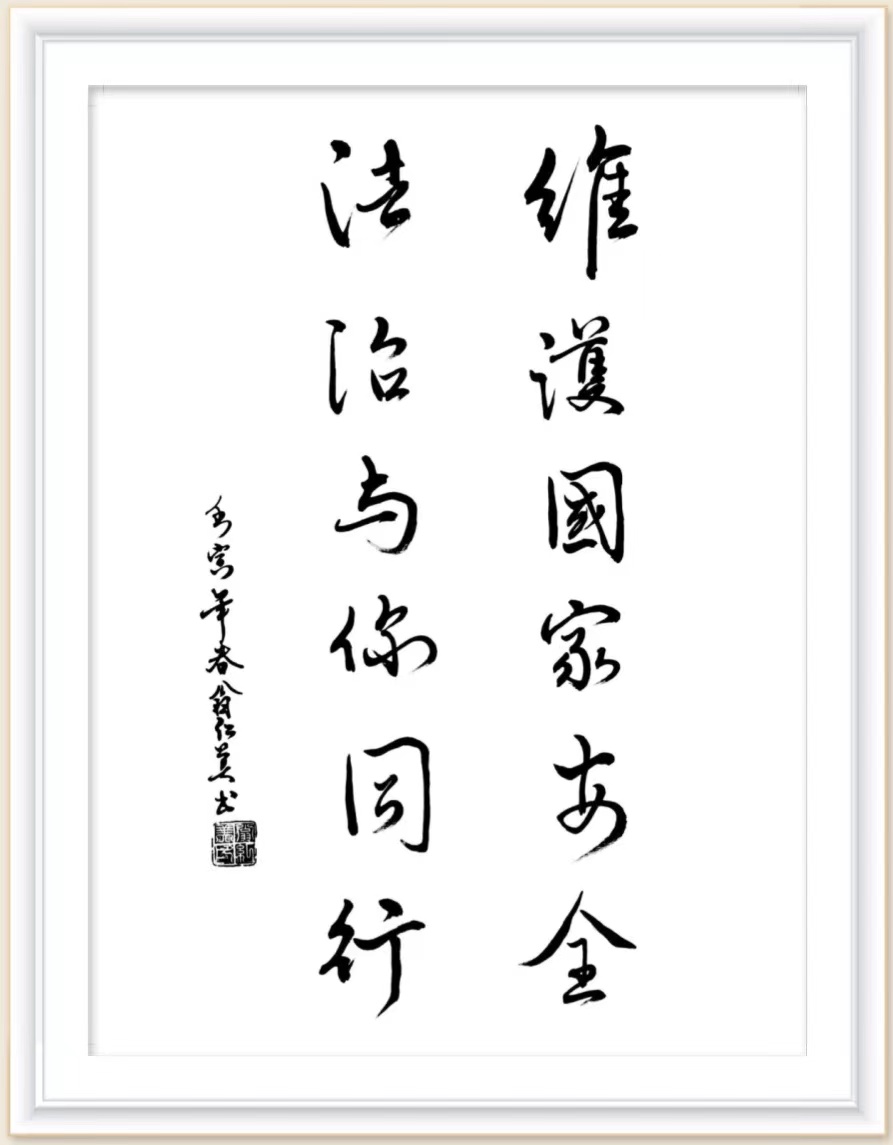 維護國家安全
法治与你同行
壬寅年春翁仁美书